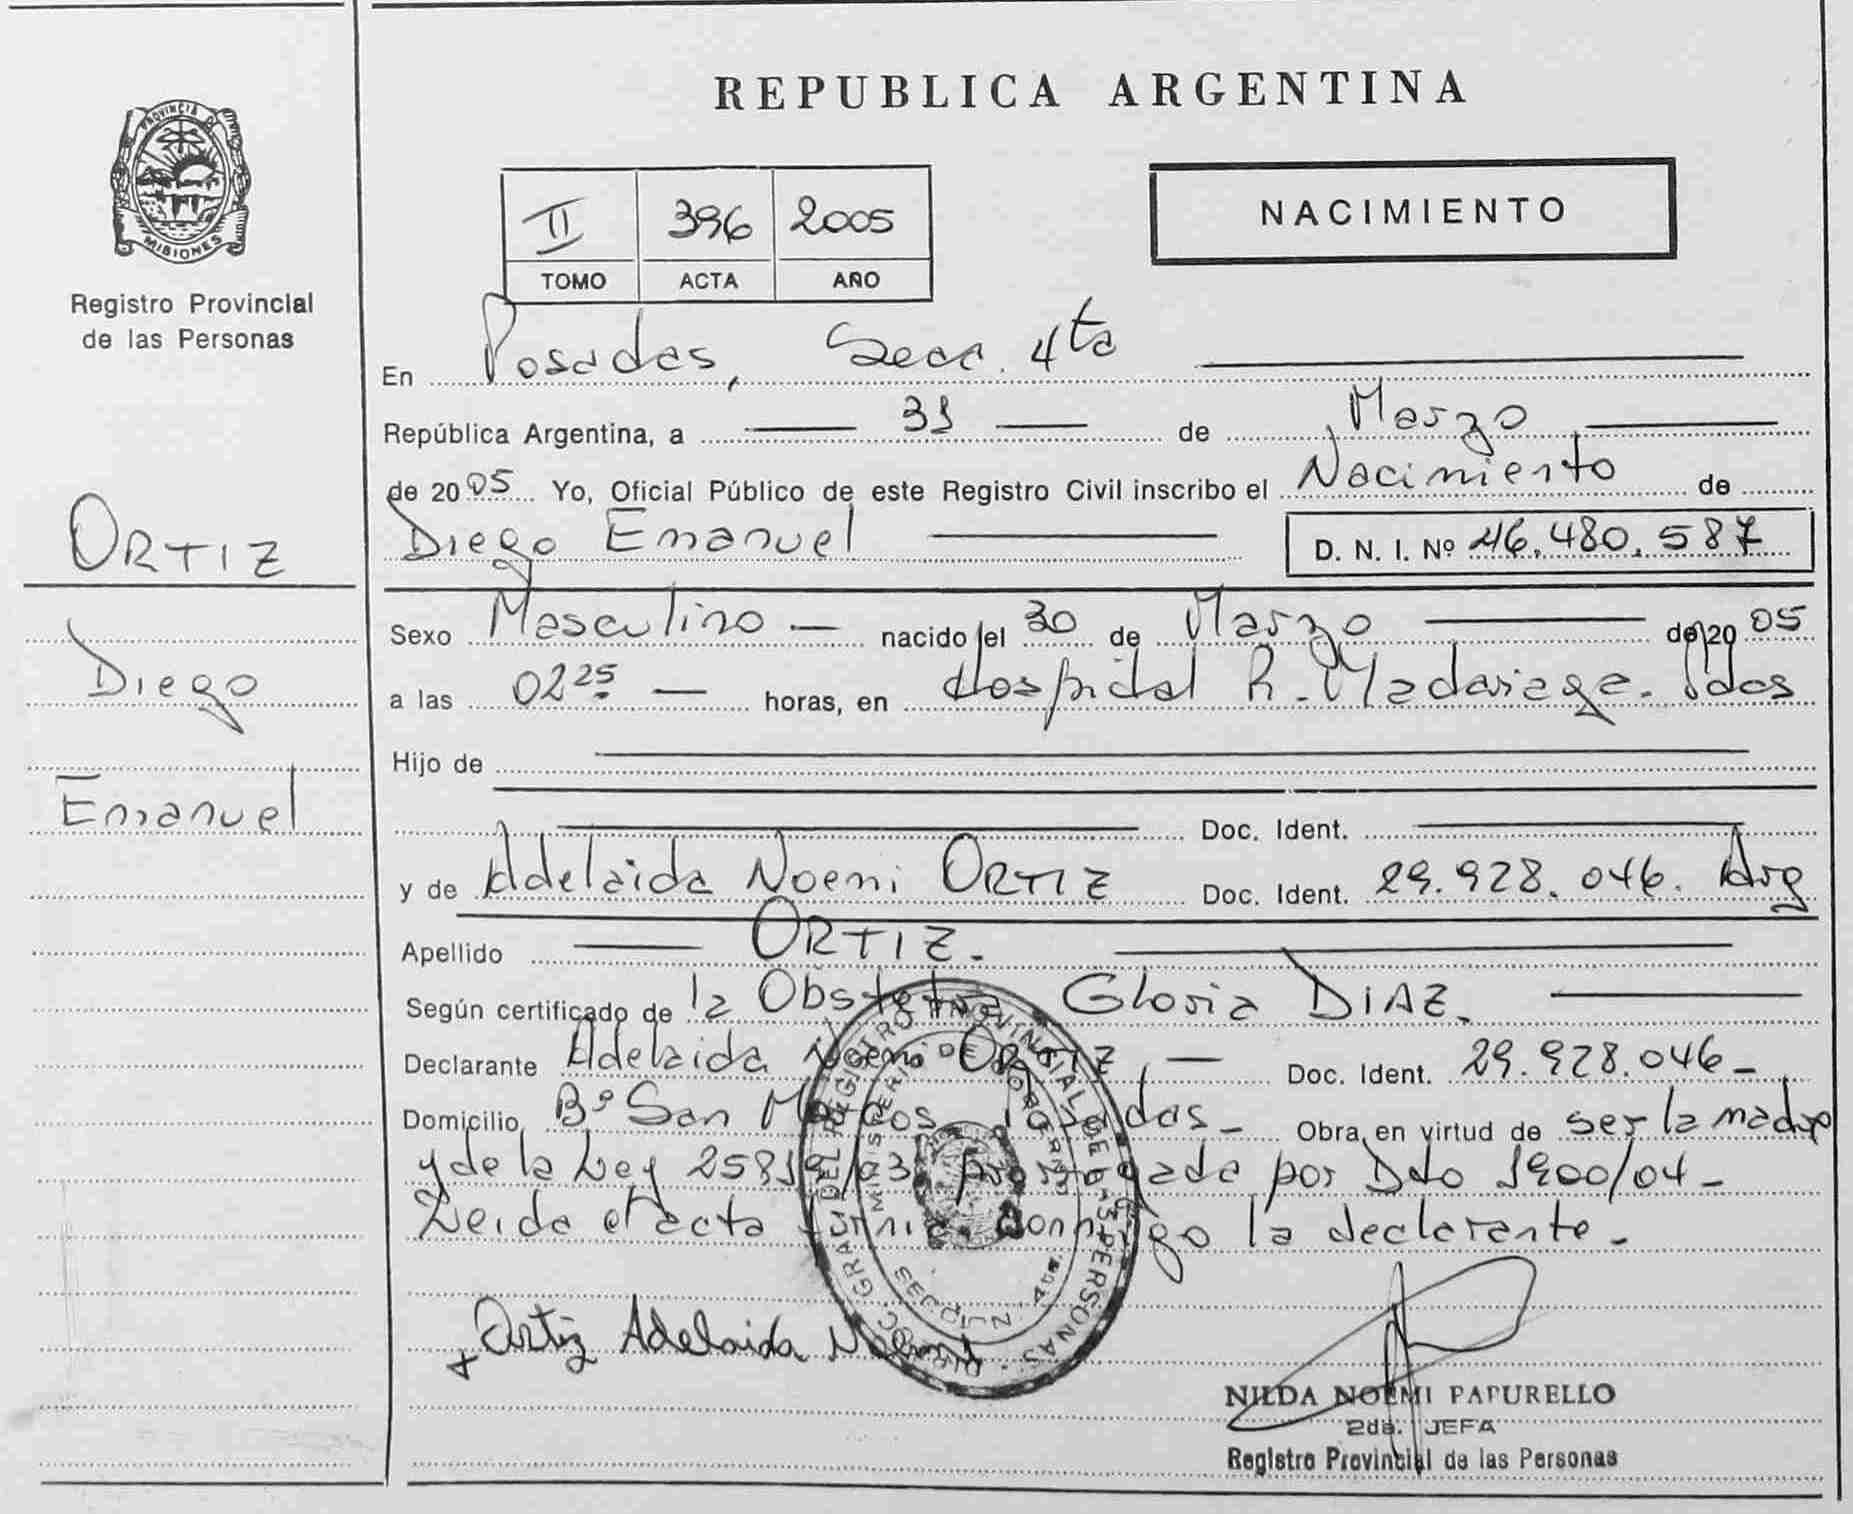 REPUBLICA ARGENTINA
PROVINCIA DE
MISIONES
Registro Provincial
de las Personas
II 396 2005
TOMO ACTA AÑO
NACIMIENTO
En Posadas, Secc. 4ta
República Argentina, a 31 de Marzo
de 2005 Yo, Oficial Público de este Registro Civil inscribo el Nacimiento de
Diego Emanuel D. N. I. Nº 46.480.587
ORTIZ
Diego
Emanuel
Sexo Masculino nacido el 30 de Marzo de 2005
a las 02 25 horas, en Hospital R. Madariaga. Pdas
Hijo de
Doc. Ident.
y de Adelaida Noemi ORTIZ Doc. Ident. 29.928.046. Arg
Apellido ORTIZ.
Según certificado de la Obstetra Gloria DIAZ.
Declarante Adelaida Noemi ORTIZ, Doc. Ident. 29.928.046
Domicilio Bº San Marcos Posadas Obra en virtud de ser la madre
y de la Ley 25819/03 prorrogada por Dto 1900/04
Leida el acta firma conmigo la declarante.
Ortiz Adelaida Noemi
DIREC. GRAL. DEL REGISTRO PROVINCIAL DE LAS PERSONAS
MINISTERIO DE GOBIERNO
NILDA NOEMI PAPURELLO
2da. JEFA
Registro Provincial de las Personas